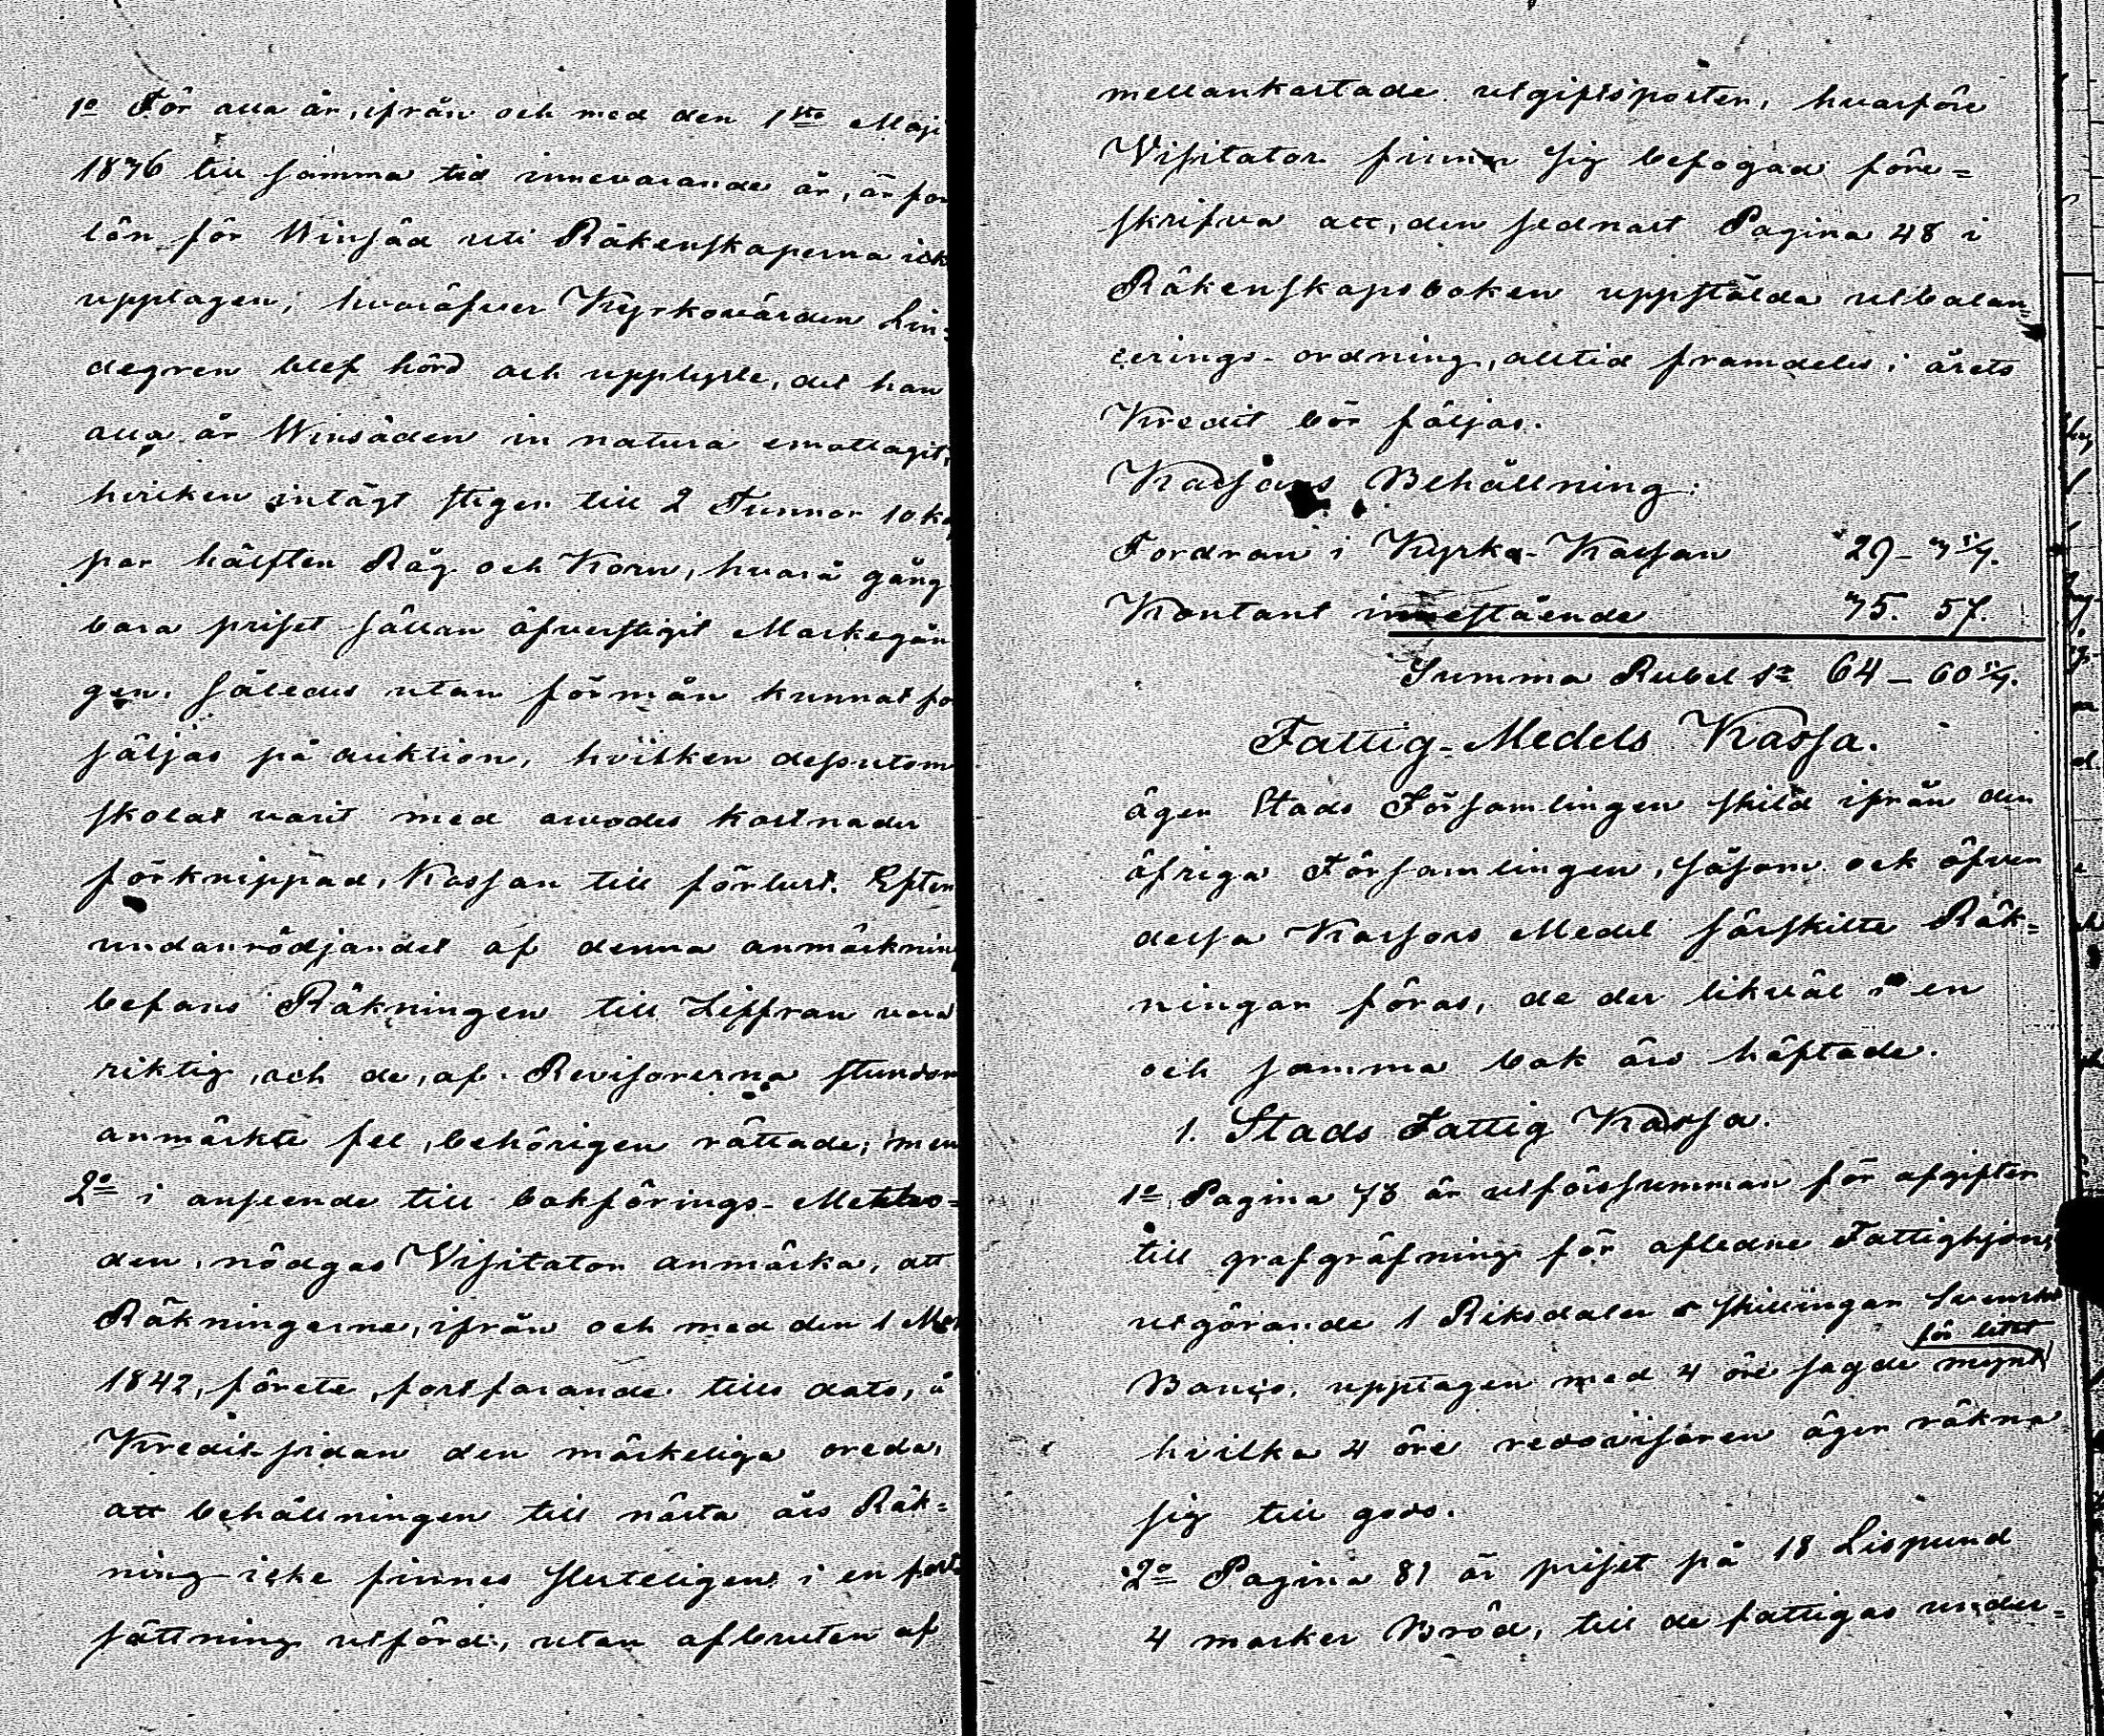 1o För alla år, ifrån och med den 1sta Maji
1836 till samma tid innevarande år, är for
lön för Winsäd uti Räkenskaperna ick
upptagen; hvaröfver Kyrkovärden Lin-
degren blef hörd och upplyste, det han
alla år Winsäden in natura emottagit,
hvilken intägt stiger till 2 Tunnor 10 ka
par hälften Råg och Korn, hvars gång
bara priset sällan öfverstigit Markegån
gen, således utan förmån kunnat fö
säljas på auktion, hvilken dessutom
skolat varit med arvodes kostnader
förknippad, Kassan till förlust. Efter
undanrödjandet af denna anmärknin
befans Räkningen till Ziffran vara
riktig, och de, af Revisorerna stundom
anmärkte fel, behörigen rättade; men
2o i anseende till bokförings-Metho-
den, nödgas Visitator anmärka, att
Räkningerne, ifrån och med den 1 Maj
1842, förete, fortfarande tills dato, å
Kredit sidan den märkeliga oreda,
att behållningen till nästa års Räk-
ning icke finnes sluteligen i en fort
sättning utförd, utan afbruten af
mellankastade utgiftsposter, hvarföre
Visitator finner sig befogad före-
skrifva att, den sednast Pagina 48 i
Räkenskapsboken uppstälda utbalan-
cerings-ordning, alltid framdeles i årets
Kredit bör följas.
Kassans Behållning:
Fordran i Kyrko-Kassan 29 - 3 5/7.
Kontant innestående 35. 57.
Summa Rubel Sr 64 - 60 5/7.
Fattig-Medels Kassa.
äger Stads Församlingen skild ifrån den
öfriga Församlingen, såsom ock öfver
dessa Kassors Medel särskilte Räk-
ningar föras, de der likväl i en
och samma bok äro häftade.
1. Stads Fattig Kassa.
1o Pagina 73 är utförssumman för afgiften
till grafgräfning för aflidne Fattighjon,
utgörande 1 Riksdaler 8 skillingar Svenska
för litet
Banco, upptagen med 4 öre sagde mynt
hvilka 4 öre redovisaren äger räkna
sig till godo.
2o Pagina 81 är priset på 18 Lispund
4 marker Bröd, till de fattigas under-